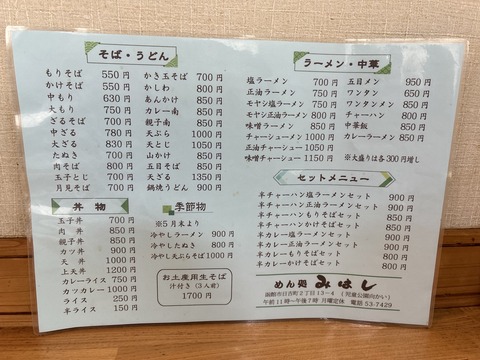 そば・うどん
もりそば 550円
かけそば 550円
中もり 630円
大もり 750円
ざるそば 700円
中ざる 780円
大ざる 830円
たぬき 700円
肉そば 800円
玉子とじ 700円
月見そば 700円
かき玉そば 700円
かしわ 800円
あんかけ 850円
カレー南 850円
親子南 850円
天ぷら 1000円
天とじ 1050円
山かけ 850円
五目そば 850円
天ざる 1350円
鍋焼うどん 900円
ラーメン・中華
塩ラーメン 700円
正油ラーメン 750円
モヤシ塩ラーメン 750円
モヤシ正油ラーメン 800円
味噌ラーメン 850円
チャーシューメン 1100円
正油チャーシュー 1150円
味噌チャーシュー 1150円
五目メン 950円
ワンタン 650円
ワンタンメン 850円
チャーハン 800円
中華飯 850円
カレーラーメン 850円
※大盛りは各300円増し
丼物
玉子丼 700円
肉丼 850円
親子丼 850円
カツ丼 900円
天丼 1000円
上天丼 1200円
カレーライス 750円
カツカレー 1000円
ライス 250円
半ライス 150円
季節物
※5月末より
冷やしラーメン 900円
冷やしたぬき 800円
冷やし天ぷらそば 1000円
お土産用生そば
汁付き(3人前)
1700円
セットメニュー
半チャーハン塩ラーメンセット 900円
半チャーハン正油ラーメンセット 950円
半チャーハンもりそばセット 850円
半チャーハンかけそばセット 850円
半カレー塩ラーメンセット 900円
半カレー正油ラーメンセット 950円
半カレーもりそばセット 850円
半カレーかけそばセット 850円
めん処 みはし
函館市日吉町2丁目13-4 (児童公園向かい)
午前11時〜午後7時 月曜定休 電話53-7429